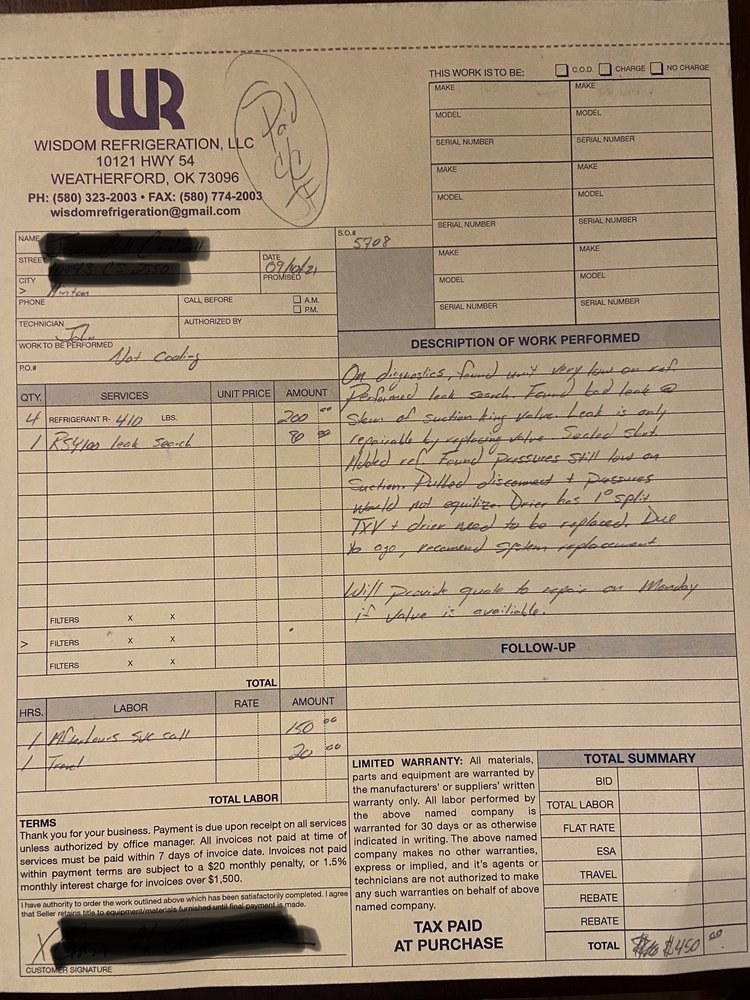 WR
Paid
CC
WISDOM REFRIGERATION, LLC
10121 HWY 54
WEATHERFORD, OK 73096
PH: (580) 323-2003 • FAX: (580) 774-2003
wisdomrefrigeration@gmail.com
THIS WORK IS TO BE: C.O.D. CHARGE NO CHARGE
MAKE MAKE
MODEL MODEL
SERIAL NUMBER SERIAL NUMBER
MAKE MAKE
MODEL MODEL
SERIAL NUMBER SERIAL NUMBER
MAKE MAKE
MODEL MODEL
SERIAL NUMBER SERIAL NUMBER
NAME
S.O.# 5708
STREET
DATE 09/10/21
PROMISED
CITY Hinton
>
PHONE CALL BEFORE A.M. P.M.
TECHNICIAN John AUTHORIZED BY
WORK TO BE PERFORMED Not Cooling
P.O.#
QTY. SERVICES UNIT PRICE AMOUNT
4 REFRIGERANT R- 410 LBS. 200 00
1 RS410a leak search 80 00
FILTERS X X
> FILTERS X X
FILTERS X X
TOTAL
HRS. LABOR RATE AMOUNT
1 Afterhours svc call 150 00
1 Travel 20 00
TOTAL LABOR
TERMS
Thank you for your business. Payment is due upon receipt on all services
unless authorized by office manager. All invoices not paid at time of
services must be paid within 7 days of invoice date. Invoices not paid
within payment terms are subject to a $20 monthly penalty, or 1.5%
monthly interest charge for invoices over $1,500.
I have authority to order the work outlined above which has been satisfactorily completed. I agree
that Seller retains title to equipment/materials furnished until final payment is made.
X
CUSTOMER SIGNATURE
DESCRIPTION OF WORK PERFORMED
On diagnostics, found unit very low on ref.
Performed leak search. Found bad leak @
Stem of suction king valve. Leak is only
repairable by replacing valve. Sealed shut.
Added ref. Found pressures still low on
Suction. Pulled disconnect + pressures
would not equilize. Drier has 1° split.
TXV + drier need to be replaced. Due
to age, recomend system replacement
Will provide quote to repair on Monday
if valve is availiable.
FOLLOW-UP
LIMITED WARRANTY: All materials,
parts and equipment are warranted by
the manufacturers' or suppliers' written
warranty only. All labor performed by
the above named company is
warranted for 30 days or as otherwise
indicated in writing. The above named
company makes no other warranties,
express or implied, and it's agents or
technicians are not authorized to make
any such warranties on behalf of above
named company.
TAX PAID
AT PURCHASE
TOTAL SUMMARY
BID
TOTAL LABOR
FLAT RATE
ESA
TRAVEL
REBATE
REBATE
TOTAL $450 00